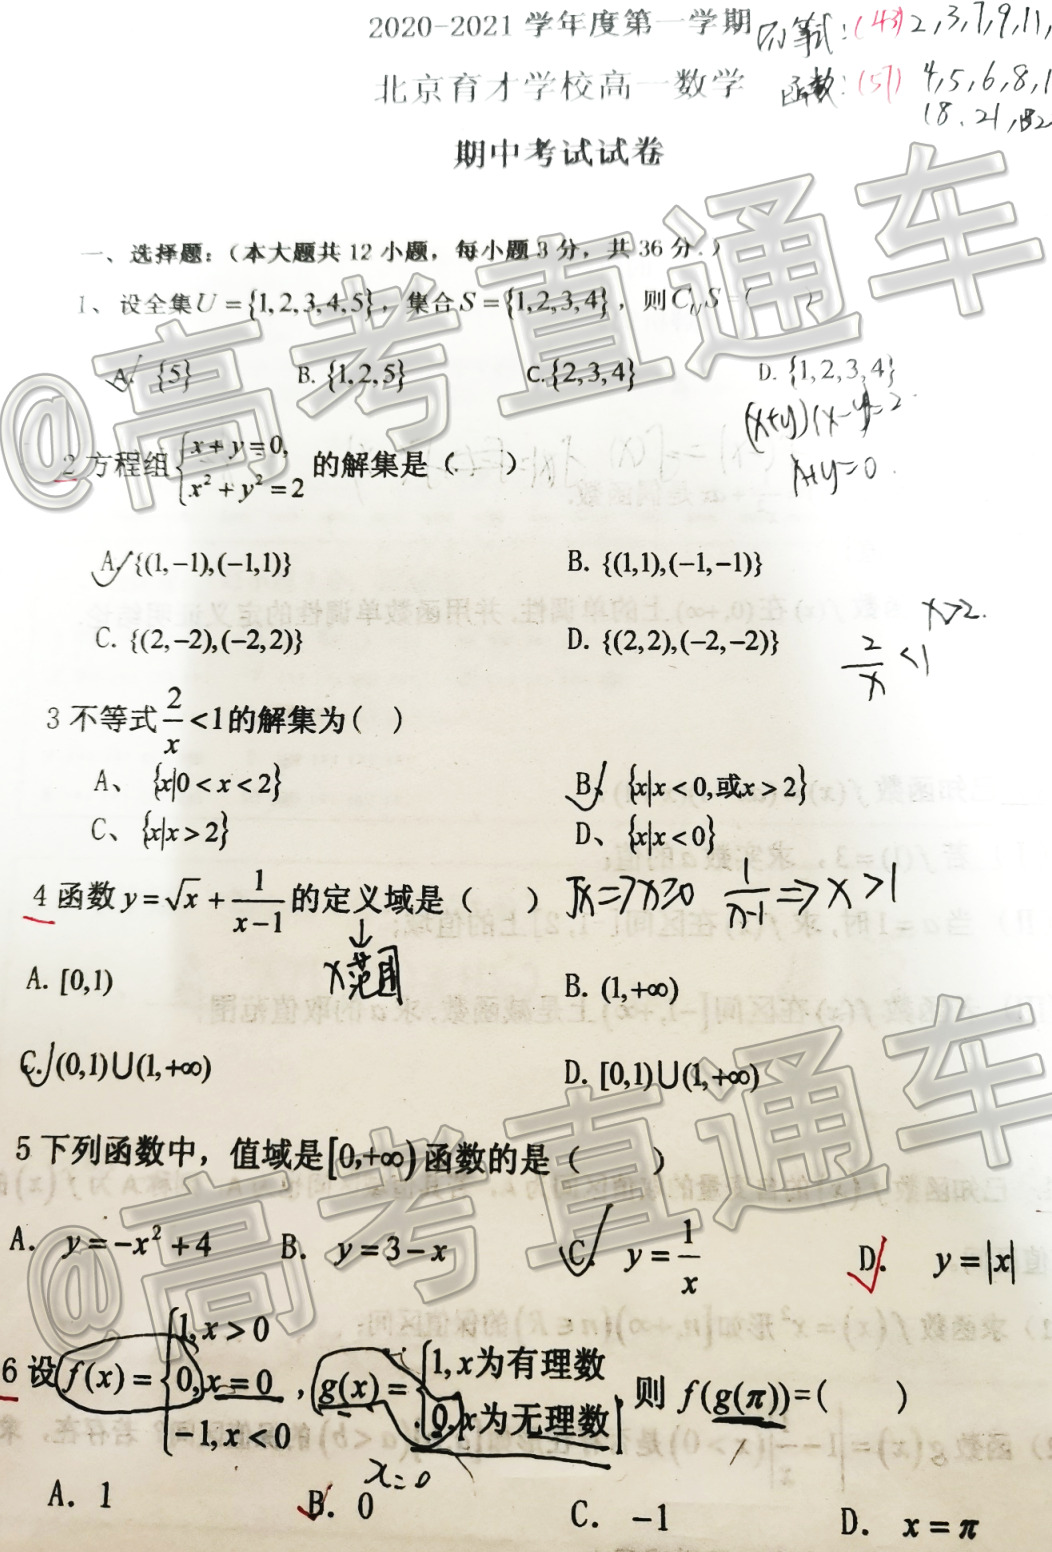 2020-2021 学年度第一学期
不等式: (43) 2,3,7,9,11,
北京育才学校高一数学
函数: (57) 4,5,6,8,1
18.21,22
期中考试试卷
一、选择题:(本大题共 12 小题,每小题 3 分,共 36 分.)
1、设全集U={1,2,3,4,5},集合S={1,2,3,4},则C_U S=( )
A. {5} B. {1,2,5} C.{2,3,4} D. {1,2,3,4}
(x+y)(x-y)=2
x+y=0
2 方程组{x+y=0, x²+y²=2 的解集是( )
A. {(1,-1),(-1,1)} B. {(1,1),(-1,-1)}
C. {(2,-2),(-2,2)} D. {(2,2),(-2,-2)}
x>2.
2/x <1
3 不等式 2/x <1的解集为( )
A、 {x|0<x<2} B、 {x|x<0,或x>2}
C、 {x|x>2} D、 {x|x<0}
4 函数 y=√x + 1/(x-1) 的定义域是 ( ) √x=>x≥0 1/(x-1) => x>1
x范围
A. [0,1) B. (1,+∞)
C. (0,1)∪(1,+∞) D. [0,1)∪(1,+∞)
5 下列函数中,值域是[0,+∞)函数的是( )
A. y=-x²+4 B. y=3-x C. y=1/x D. y=|x|
6 设 f(x)={1,x>0 0,x=0 -1,x<0 , g(x)={1,x为有理数 0,x为无理数 , 则 f(g(π))=( )
x=0
A. 1 B. 0 C. -1 D. x=π
@高考直通车
@高考直通车